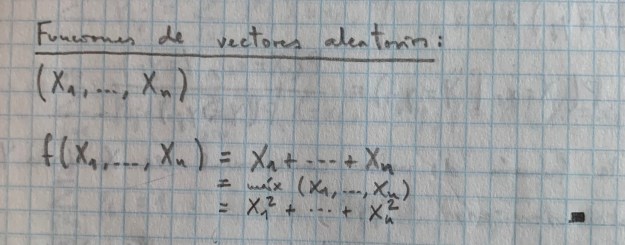 Funciones de vectores aleatorios:
(X₁, ..., Xₙ)
f(X₁, ..., Xₙ) = X₁ + ... + Xₙ
= máx (X₁, ..., Xₙ)
= X₁² + ... + Xₙ²